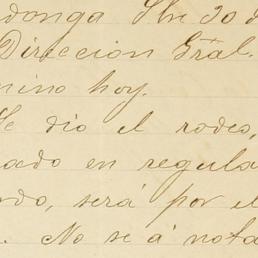 donga Sbre 20 d
Direccion Gral.
mino hoy.
Se dio el rodeo,
ado en regula
ndo, será por el
. No se á nota